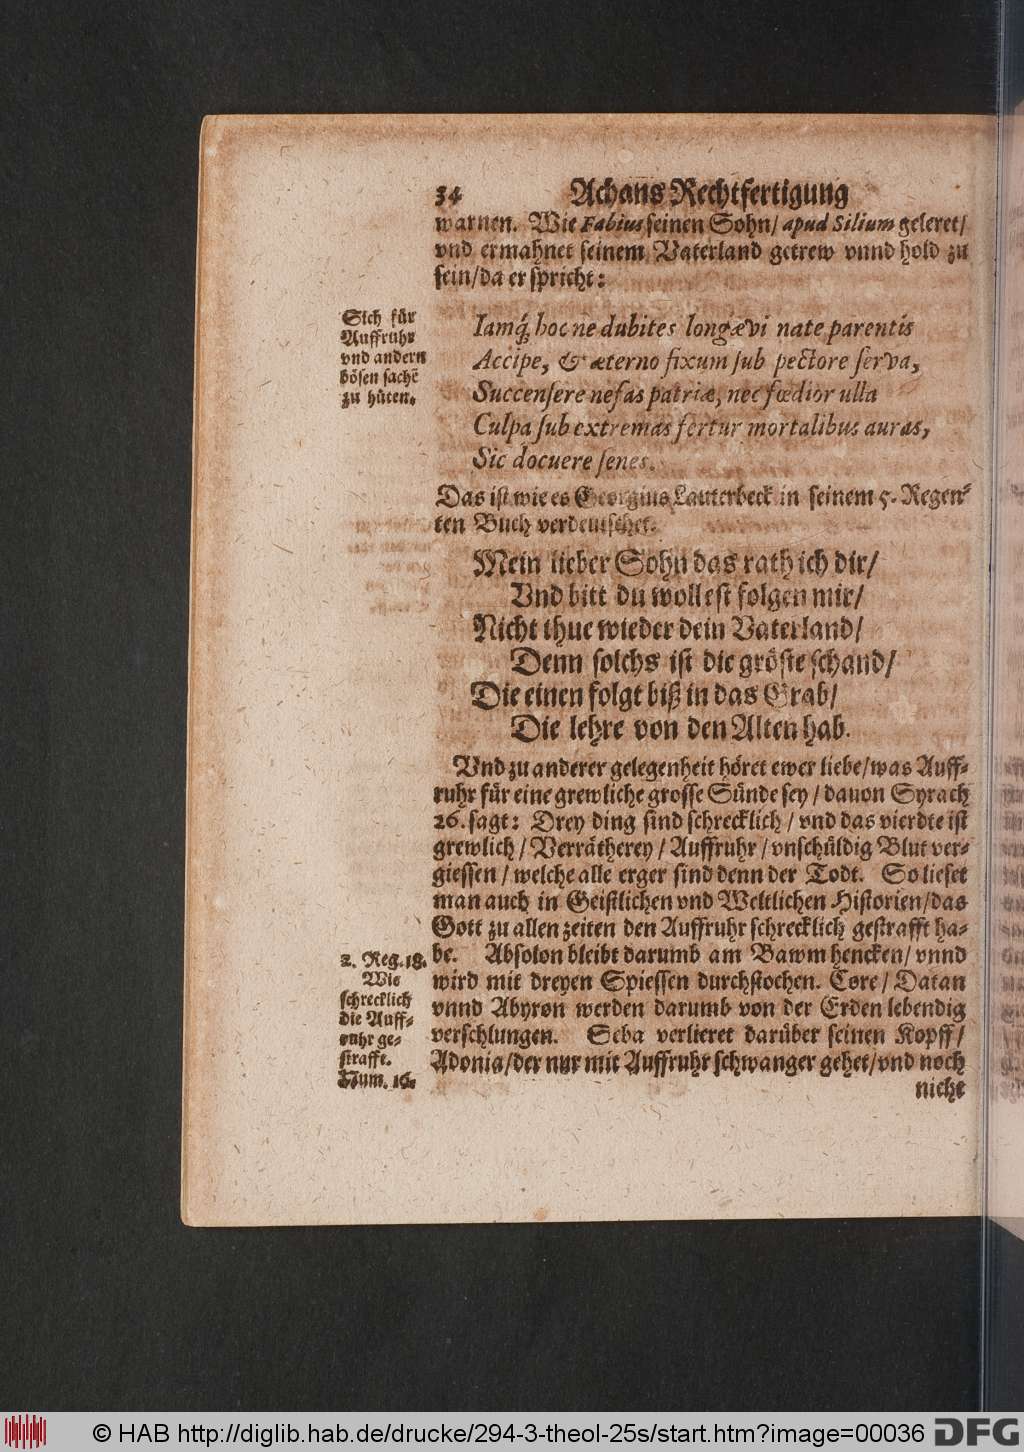 34 Achans Rechtfertigung
warnen. Wie Fabius seinen Sohn/ apud Silium geleret/
vnd ermahnet seinem Vaterland getrew vnnd hold zu
sein/da er spricht:
Sich für
Auffruhr
vnd andern
bösen sachē
zu hüten.
Iamq́; hoc ne dubites longævi nate parentis
Accipe, & æterno fixum sub pectore serva,
Succensere nefas patriæ, nec fœdior ulla
Culpa sub extremas fertur mortalibus auras,
Sic docuere senes.
Das ist wie es Georgius Lauterbeck in seinem 5. Regen-
ten Buch verdeutschet.
Mein lieber Sohn das rath ich dir/
Vnd bitt du wollest folgen mir/
Nicht thue wieder dein Vaterland/
Denn solchs ist die gröste schand/
Die einen folgt biß in das Grab/
Die lehre von den Alten hab.
Vnd zu anderer gelegenheit höret ewer liebe/was Auff-
ruhr für eine grewliche grosse Sünde sey/dauon Syrach
26. sagt: Drey ding sind schrecklich/vnd das vierdte ist
grewlich/Verrätherey/Auffruhr/vnschüldig Blut ver-
giessen/welche alle erger sind denn der Todt. So lieset
man auch in Geistlichen vnd Weltlichen Historien/das
Gott zu allen zeiten den Auffruhr schrecklich gestrafft ha-
be. Absolon bleibt darumb am Bawm hencken/vnnd
wird mit dreyen Spiessen durchstochen. Core/Datan
vnnd Abyron werden darumb von der Erden lebendig
verschlungen. Seba verlieret darüber seinen Kopff/
Adonia/der nur mit Auffruhr schwanger gehet/vnd noch
nicht
2. Reg. 18.
Wie
schrecklich
die Auff-
ruhr ge-
strafft.
Num. 16.
© HAB http://diglib.hab.de/drucke/294-3-theol-25s/start.htm?image=00036
DFG